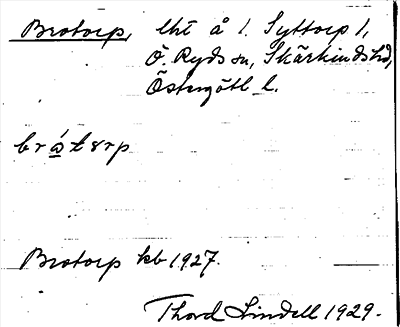 Brotorp, lht å l. Syttorp 1,
Ö. Ryds sn, Skärkinds hd,
Östergötl. l.
Brotorp kb 1927.
Thord Lindell 1929.